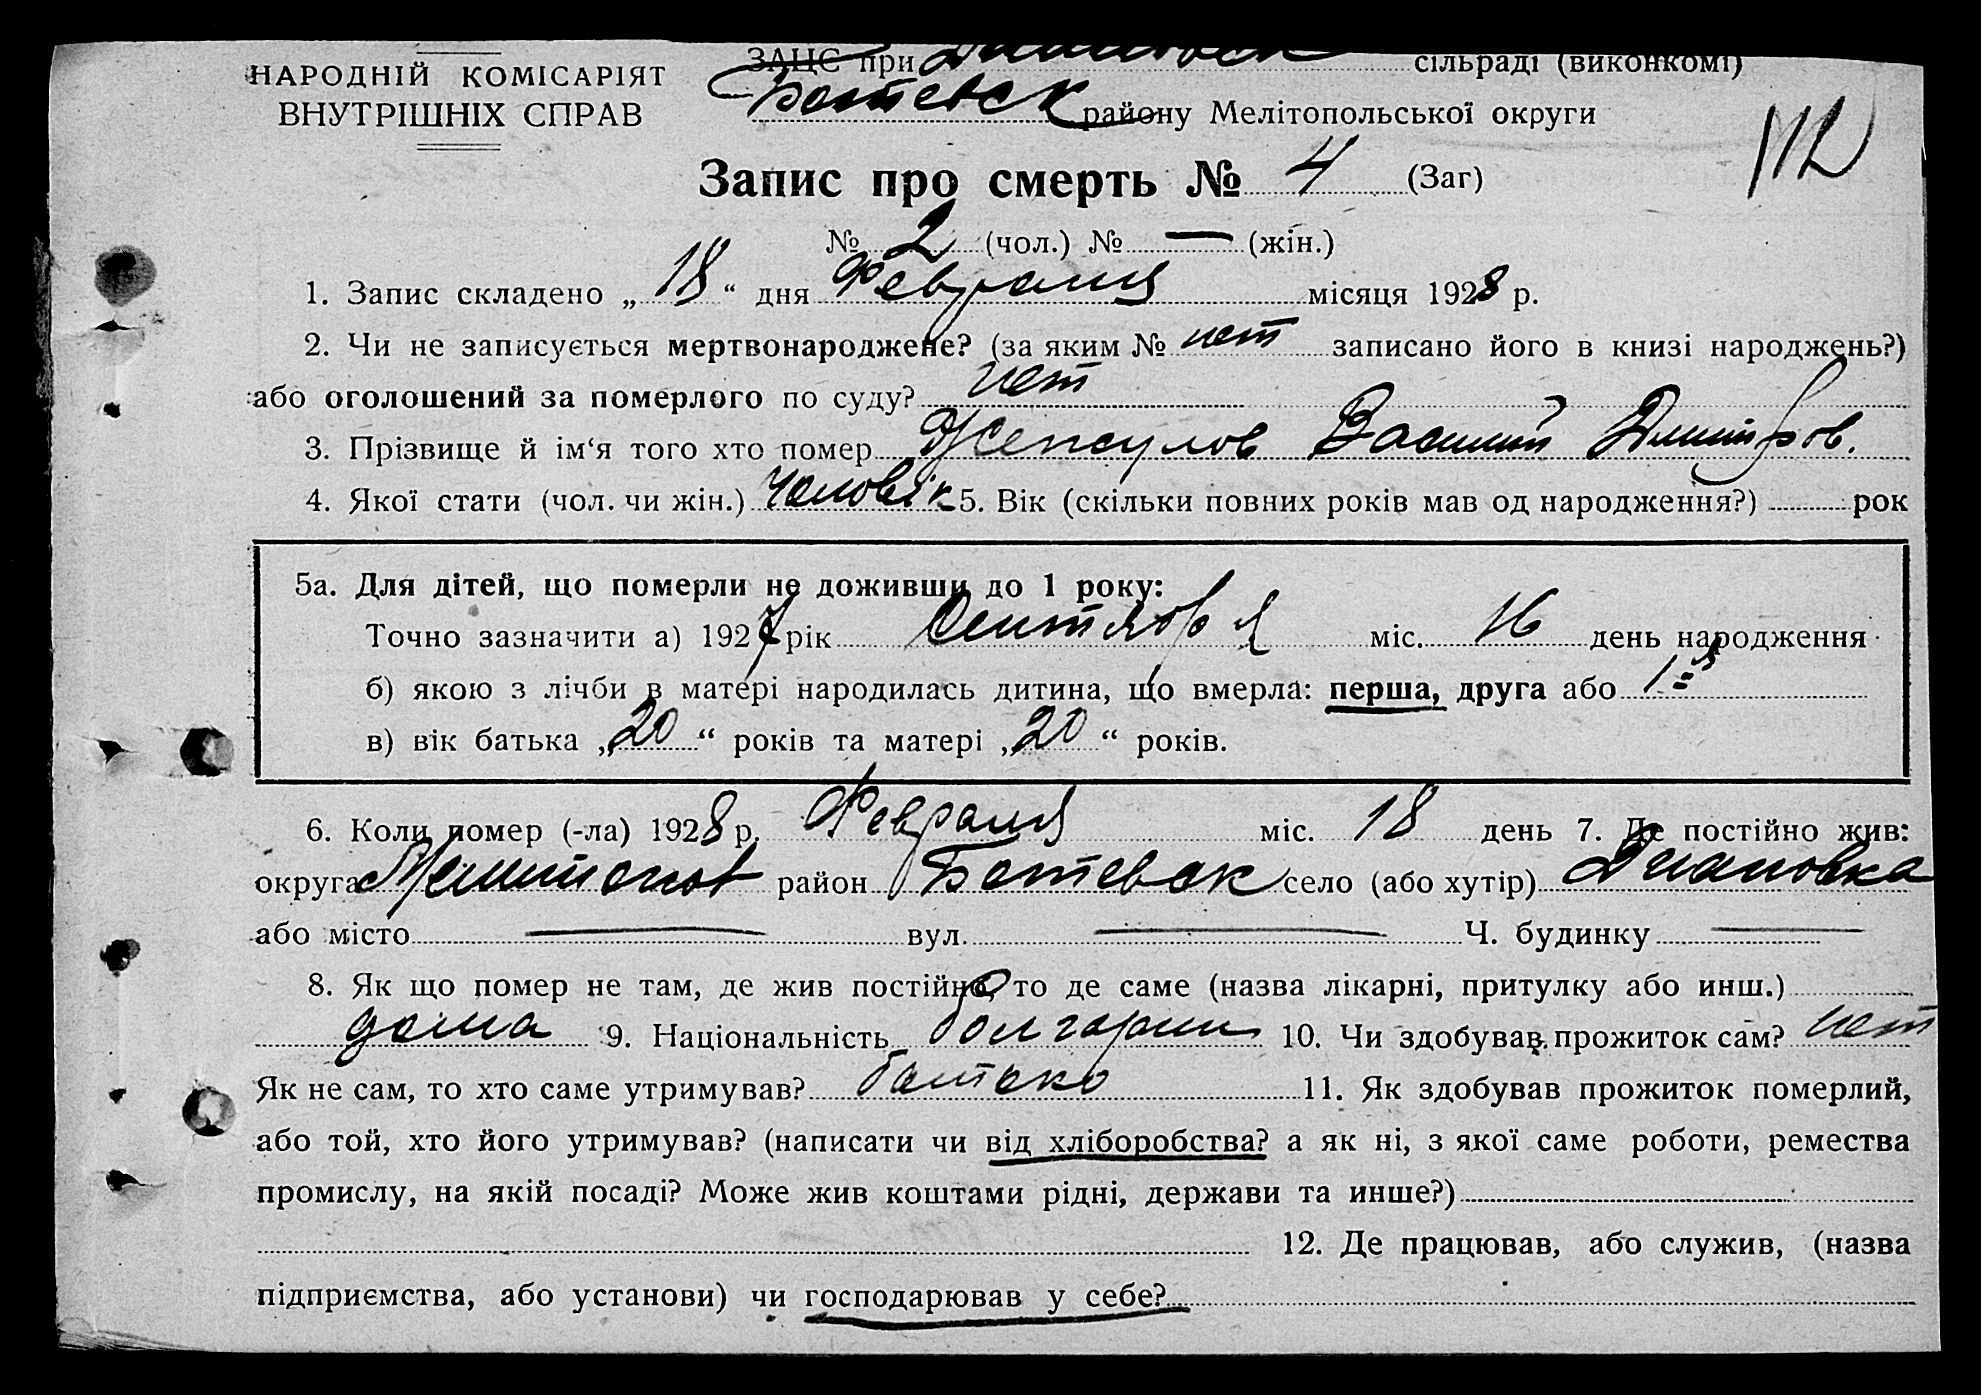 НАРОДНІЙ КОМІСАРІЯТ
ВНУТРІШНІХ СПРАВ
ЗАЦС при сільраді (виконкомі)
Ботевск району Мелітопольської округи
112
Запис про смерть № 4 (Заг)
№ 2 (чол.) № — (жін.)
1. Запис складено „ 18 “ дня Февраля місяця 1928 р.
2. Чи не записується мертвонароджене? (за яким № нет записано його в книзі народжень?)
або оголошений за померлого по суду? нет
3. Прізвище й ім‘я того хто помер Жепсулов Василий Дмитров.
4. Якої стати (чол. чи жін.) Чоловік 5. Вік (скільки повних років мав од народження?) рок
5а. Для дітей, що померли не доживши до 1 року:
Точно зазначити а) 1927 рік Сентября міс. 16 день народження
б) якою з лічби в матері народилась дитина, що вмерла: перша, друга або 1-я
в) вік батька „20“ років та матері „20“ років.
6. Коли помер (-ла) 1928 р. Февраля міс. 18 день 7. Де постійно жив:
округа Мелитопол район Ботевск село (або хутір) Диановка
або місто — вул. — Ч. будинку —
8. Як що помер не там, де жив постійно, то де саме (назва лікарні, притулку або инш.)
дома 9. Національність болгарин 10. Чи здобував прожиток сам? нет
Як не сам, то хто саме утримував? батько 11. Як здобував прожиток померлий,
або той, хто його утримував? (написати чи від хліборобства? а як ні, з якої саме роботи, ремества
промислу, на якій посаді? Може жив коштами рідні, держави та инше?)
12. Де працював, або служив, (назва
підприємства, або установи) чи господарював у себе?